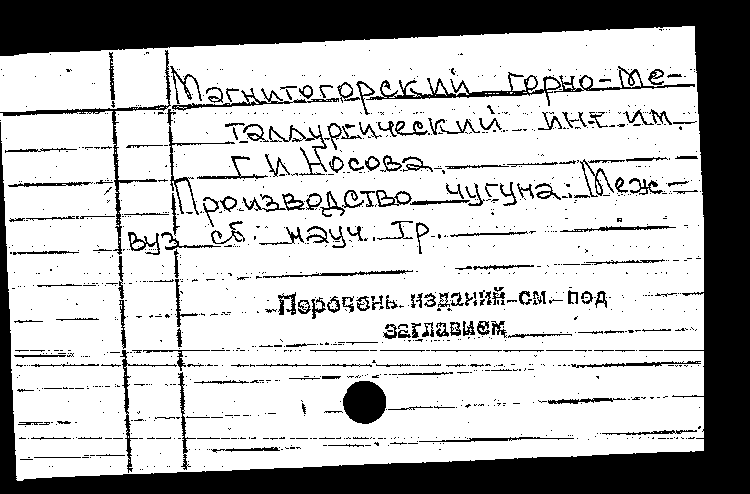 Магнитогорский горно-ме-
таллургический инт им.
Г.И Носова.
Производство чугуна: Меж-
вуз сб. науч. тр.
Перечень изданий см. под
заглавием